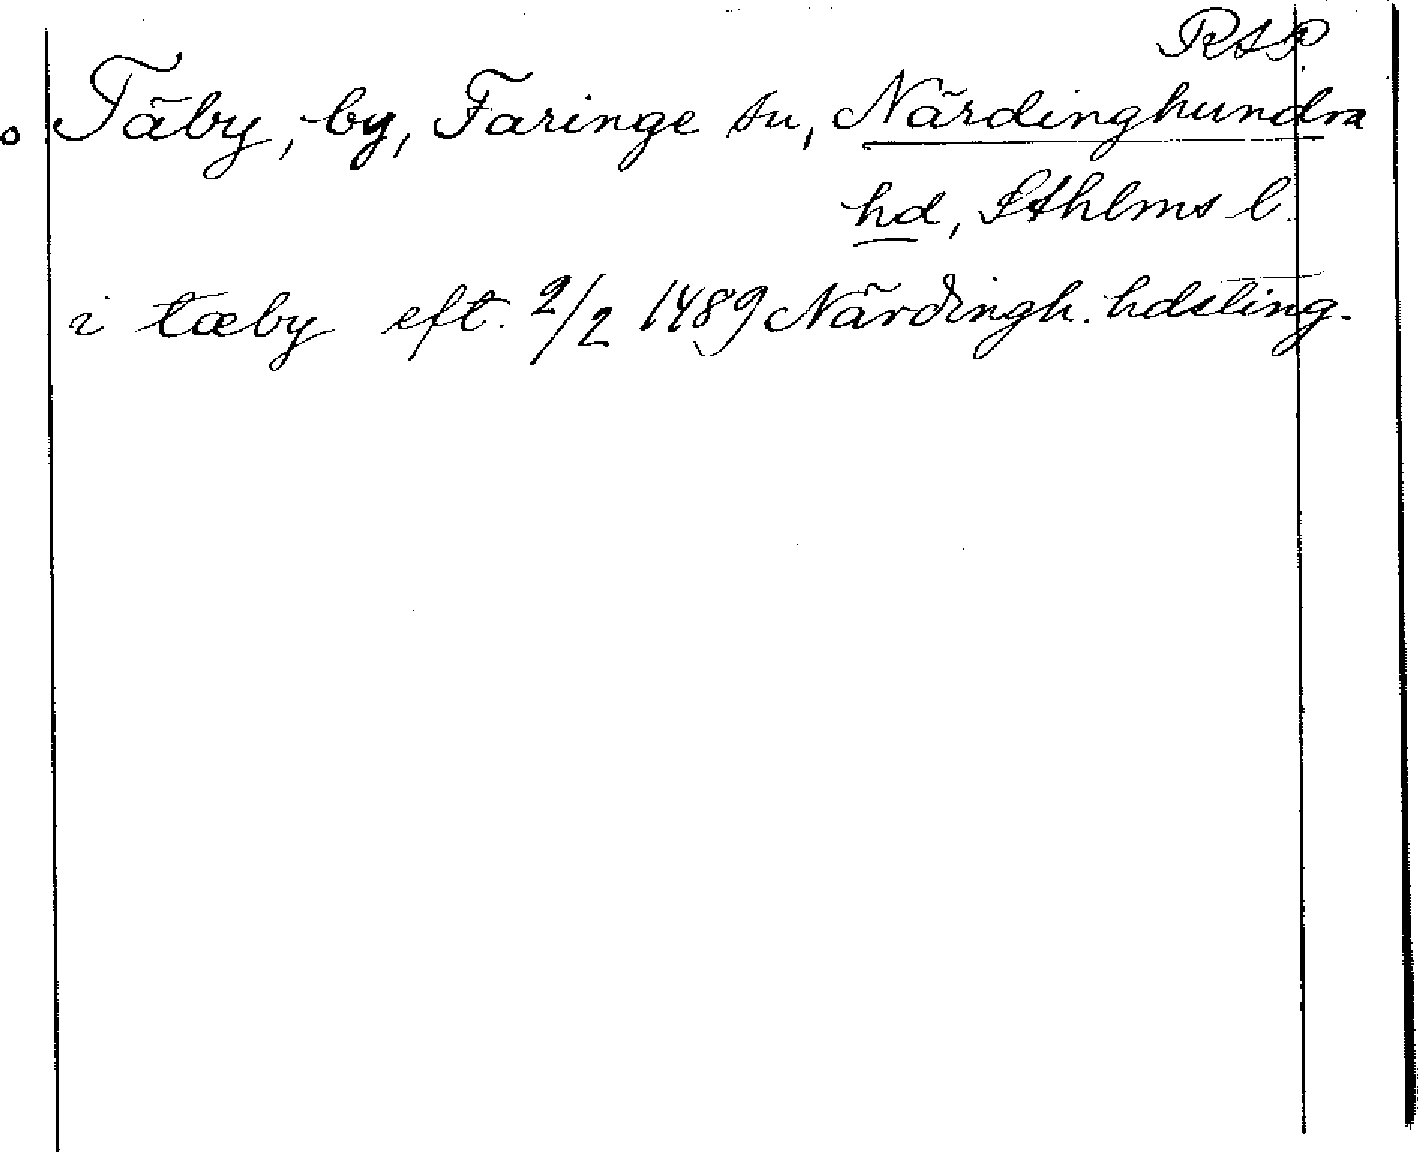 RAP
Täby, by, Faringe sn, Närdinghundra
hd, Sthlms l.
i tæby eft. 2/2 1489 Närdingh. hdsting.